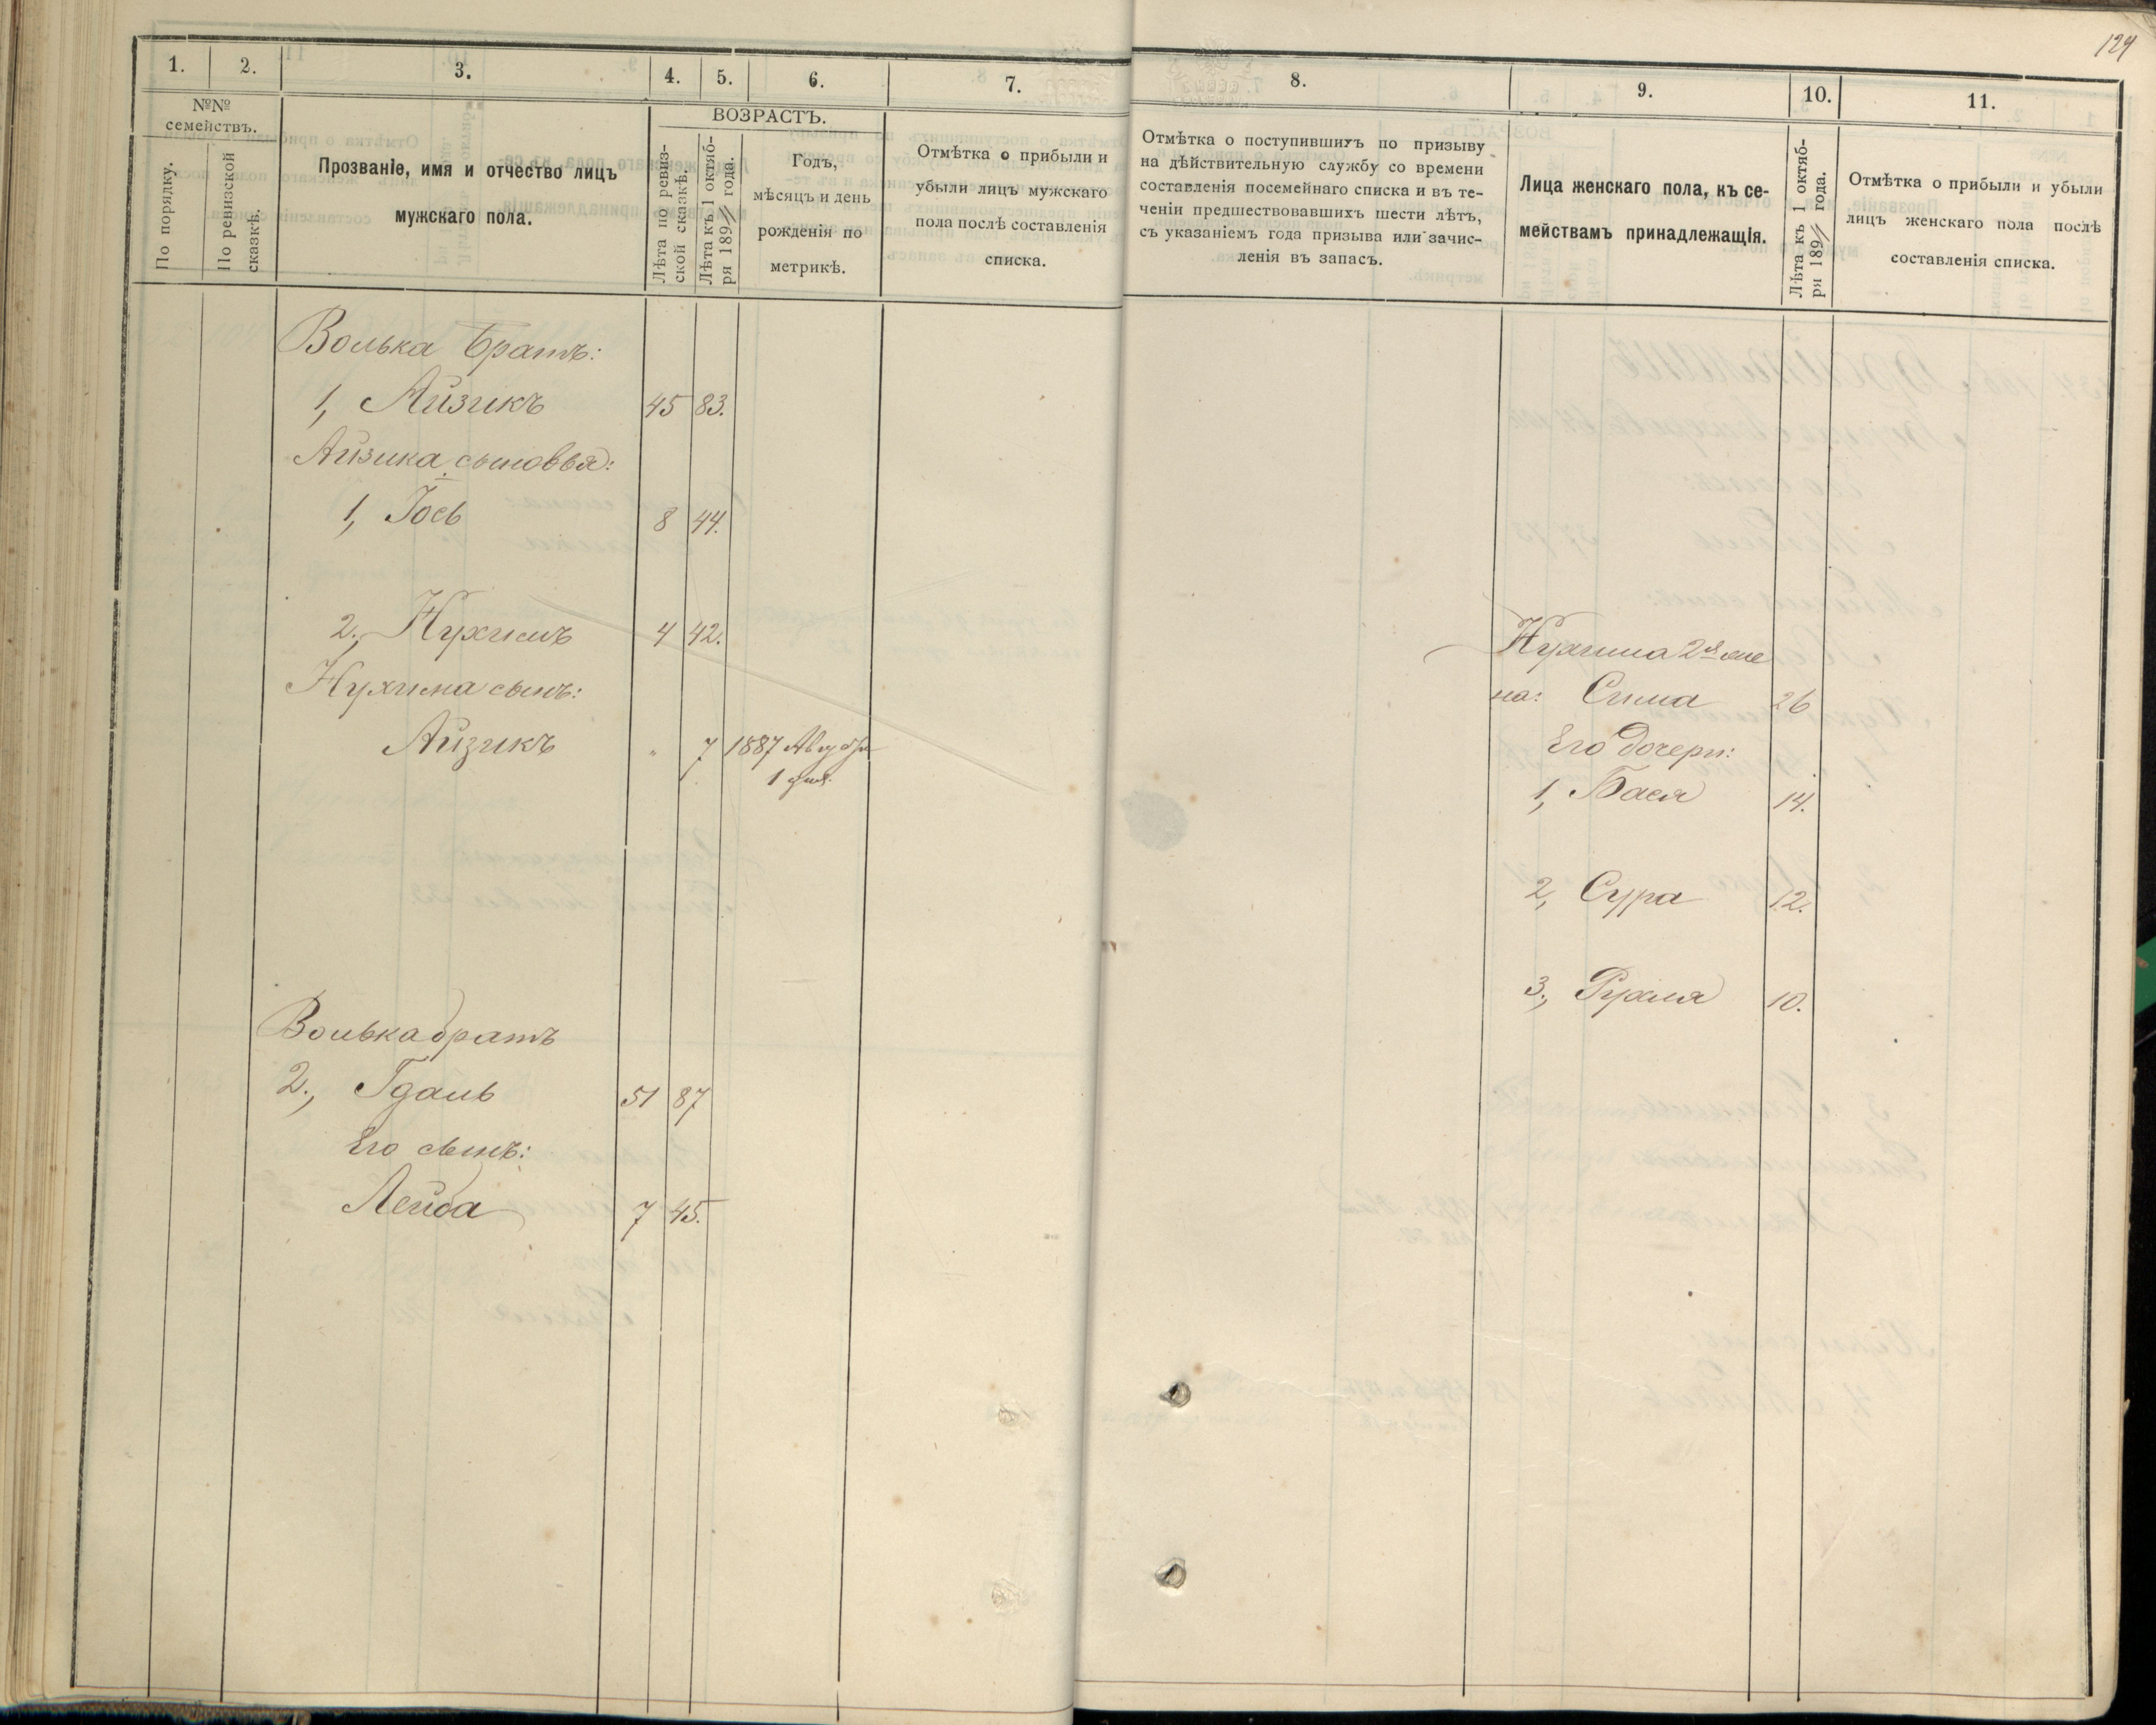 124
1. 2. 3. 4. 5. 6. 7.
№№ семействъ.
По порядку.
По ревизской сказкѣ.
Прозваніе, имя и отчество лицъ
мужскаго пола.
ВОЗРАСТЪ.
Лѣта по ревиз-
ской сказкѣ.
Лѣта къ 1 октяб-
ря 189 года.
Годъ,
мѣсяцъ и день
рожденія по
метрикѣ.
Отмѣтка о прибыли и
убыли лицъ мужскаго
пола послѣ составленія
списка.
Волька братъ:
1, Айзикъ 45 83.
Айзика сыновья:
1, Іось 8 44.
2, Нухимъ 4 42.
Нухима сынъ:
Айзикъ " 7 1887
1 дня.
Волька братъ
2., Гдаль 51 87
Его сынъ:
Лейба 7 45.
8. 9. 10. 11.
Отмѣтка о поступившихъ по призыву
на дѣйствительную службу со времени
составленія посемейнаго списка и въ те-
ченіи предшествовавшихъ шести лѣтъ,
съ указаніемъ года призыва или зачис-
ленія въ запасъ.
Лица женскаго пола, къ се-
мействамъ принадлежащія.
Лѣта къ 1 октяб-
ря 189 года.
Отмѣтка о прибыли и убыли
лицъ женскаго пола послѣ
составленія списка.
Нухима 2я же
на: Сима 26
Его дочери:
1, Бася 14.
2, Сура 12.
3., Рухля 10.